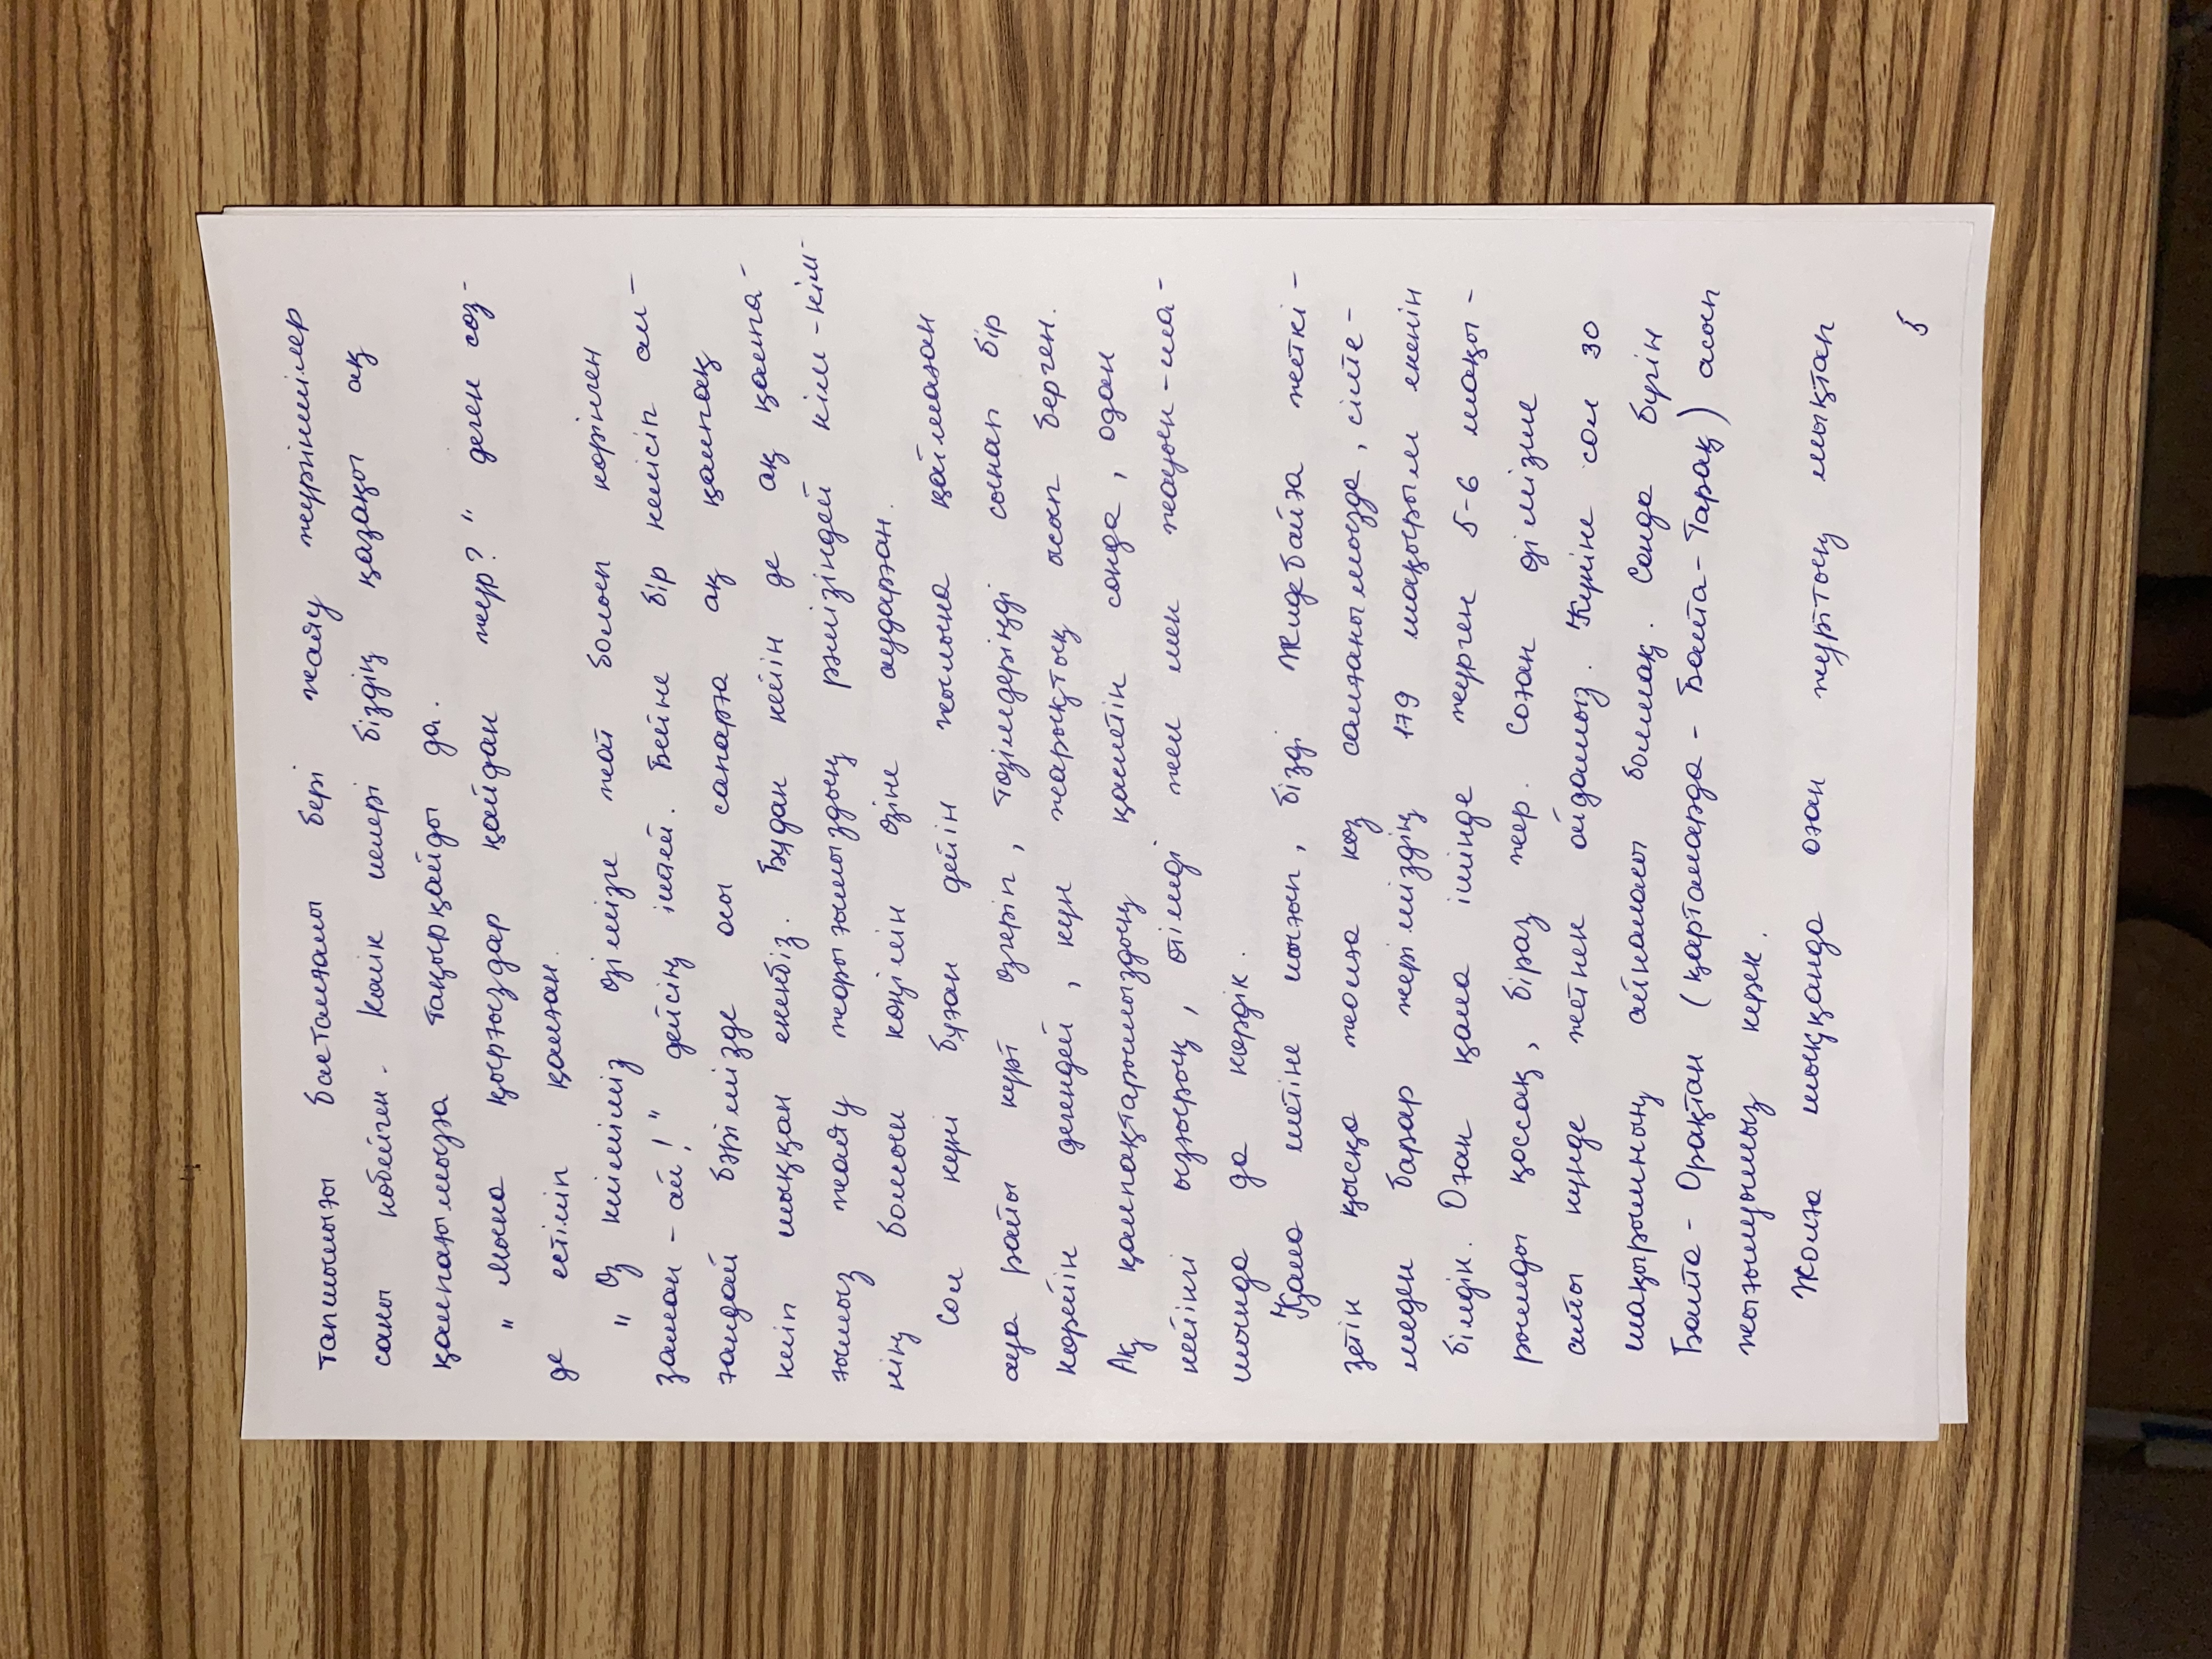 тапшылығы басталғалы бері жаяу жүргіншілер
саны көбейген. Көлік иелері біздің қазақы ақ
қалпағымызға таңырқайды да.
„Мына қырғыздар қайдан жүр?" деген сөз-
де естіліп қалған.
„Өз киіміміз өзімізге жат болып көрінген
заман-ай!" дейсің іштей. Бейне бір келісіп ал-
ғандай бәрімізде осы сапарға ақ қалпақ
киіп шыққан екенбіз. Бұдан кейін де ақ қалпа-
ғымыз жаяу жорығымыздың рәмізіндей кім-кім-
нің болсын көңілін өзіне аударған.
Сол күні бұған дейін жылына қоймаған
ауа райы күрт өзгеріп, төзімдеріңді сынап бір
көрейін дегендей, күн жарықтық ысып берген.
Ақ қалпақтарымыздың қасиетін сонда, одан
кейінгі ызғырық, өтімді жел мен жауын-ша-
шында да көрдік.
Қала шетіне шығып, бізді Жидебайға жеткі-
зетін қысқа жолға көз салғанымызда, сілте-
меден барар жеріміздің 179 шақырым екенін
білдік. Оған қала ішінде жүрген 5-6 шақы-
рымды қоссақ, біраз жер. Соған өзімізше
алты күнде жетпек ойдамыз. Күніне сол 30
шақырымның айналасы болмақ. Сонда бүгін
Балта-Орақтан (карталарда - Балта-Тарақ) асып
жығылуымыз керек.
Жолға шыққанда оған жұрттың мықтап
5